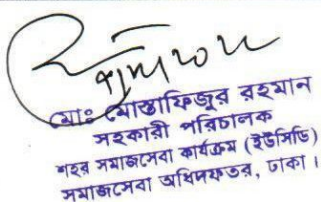 মোঃ মোস্তাফিজুর রহমান
সহকারী পরিচালক
শহর সমাজসেবা কার্যক্রম (ইউসিডি)
সমাজসেবা অধিদফতর, ঢাকা।